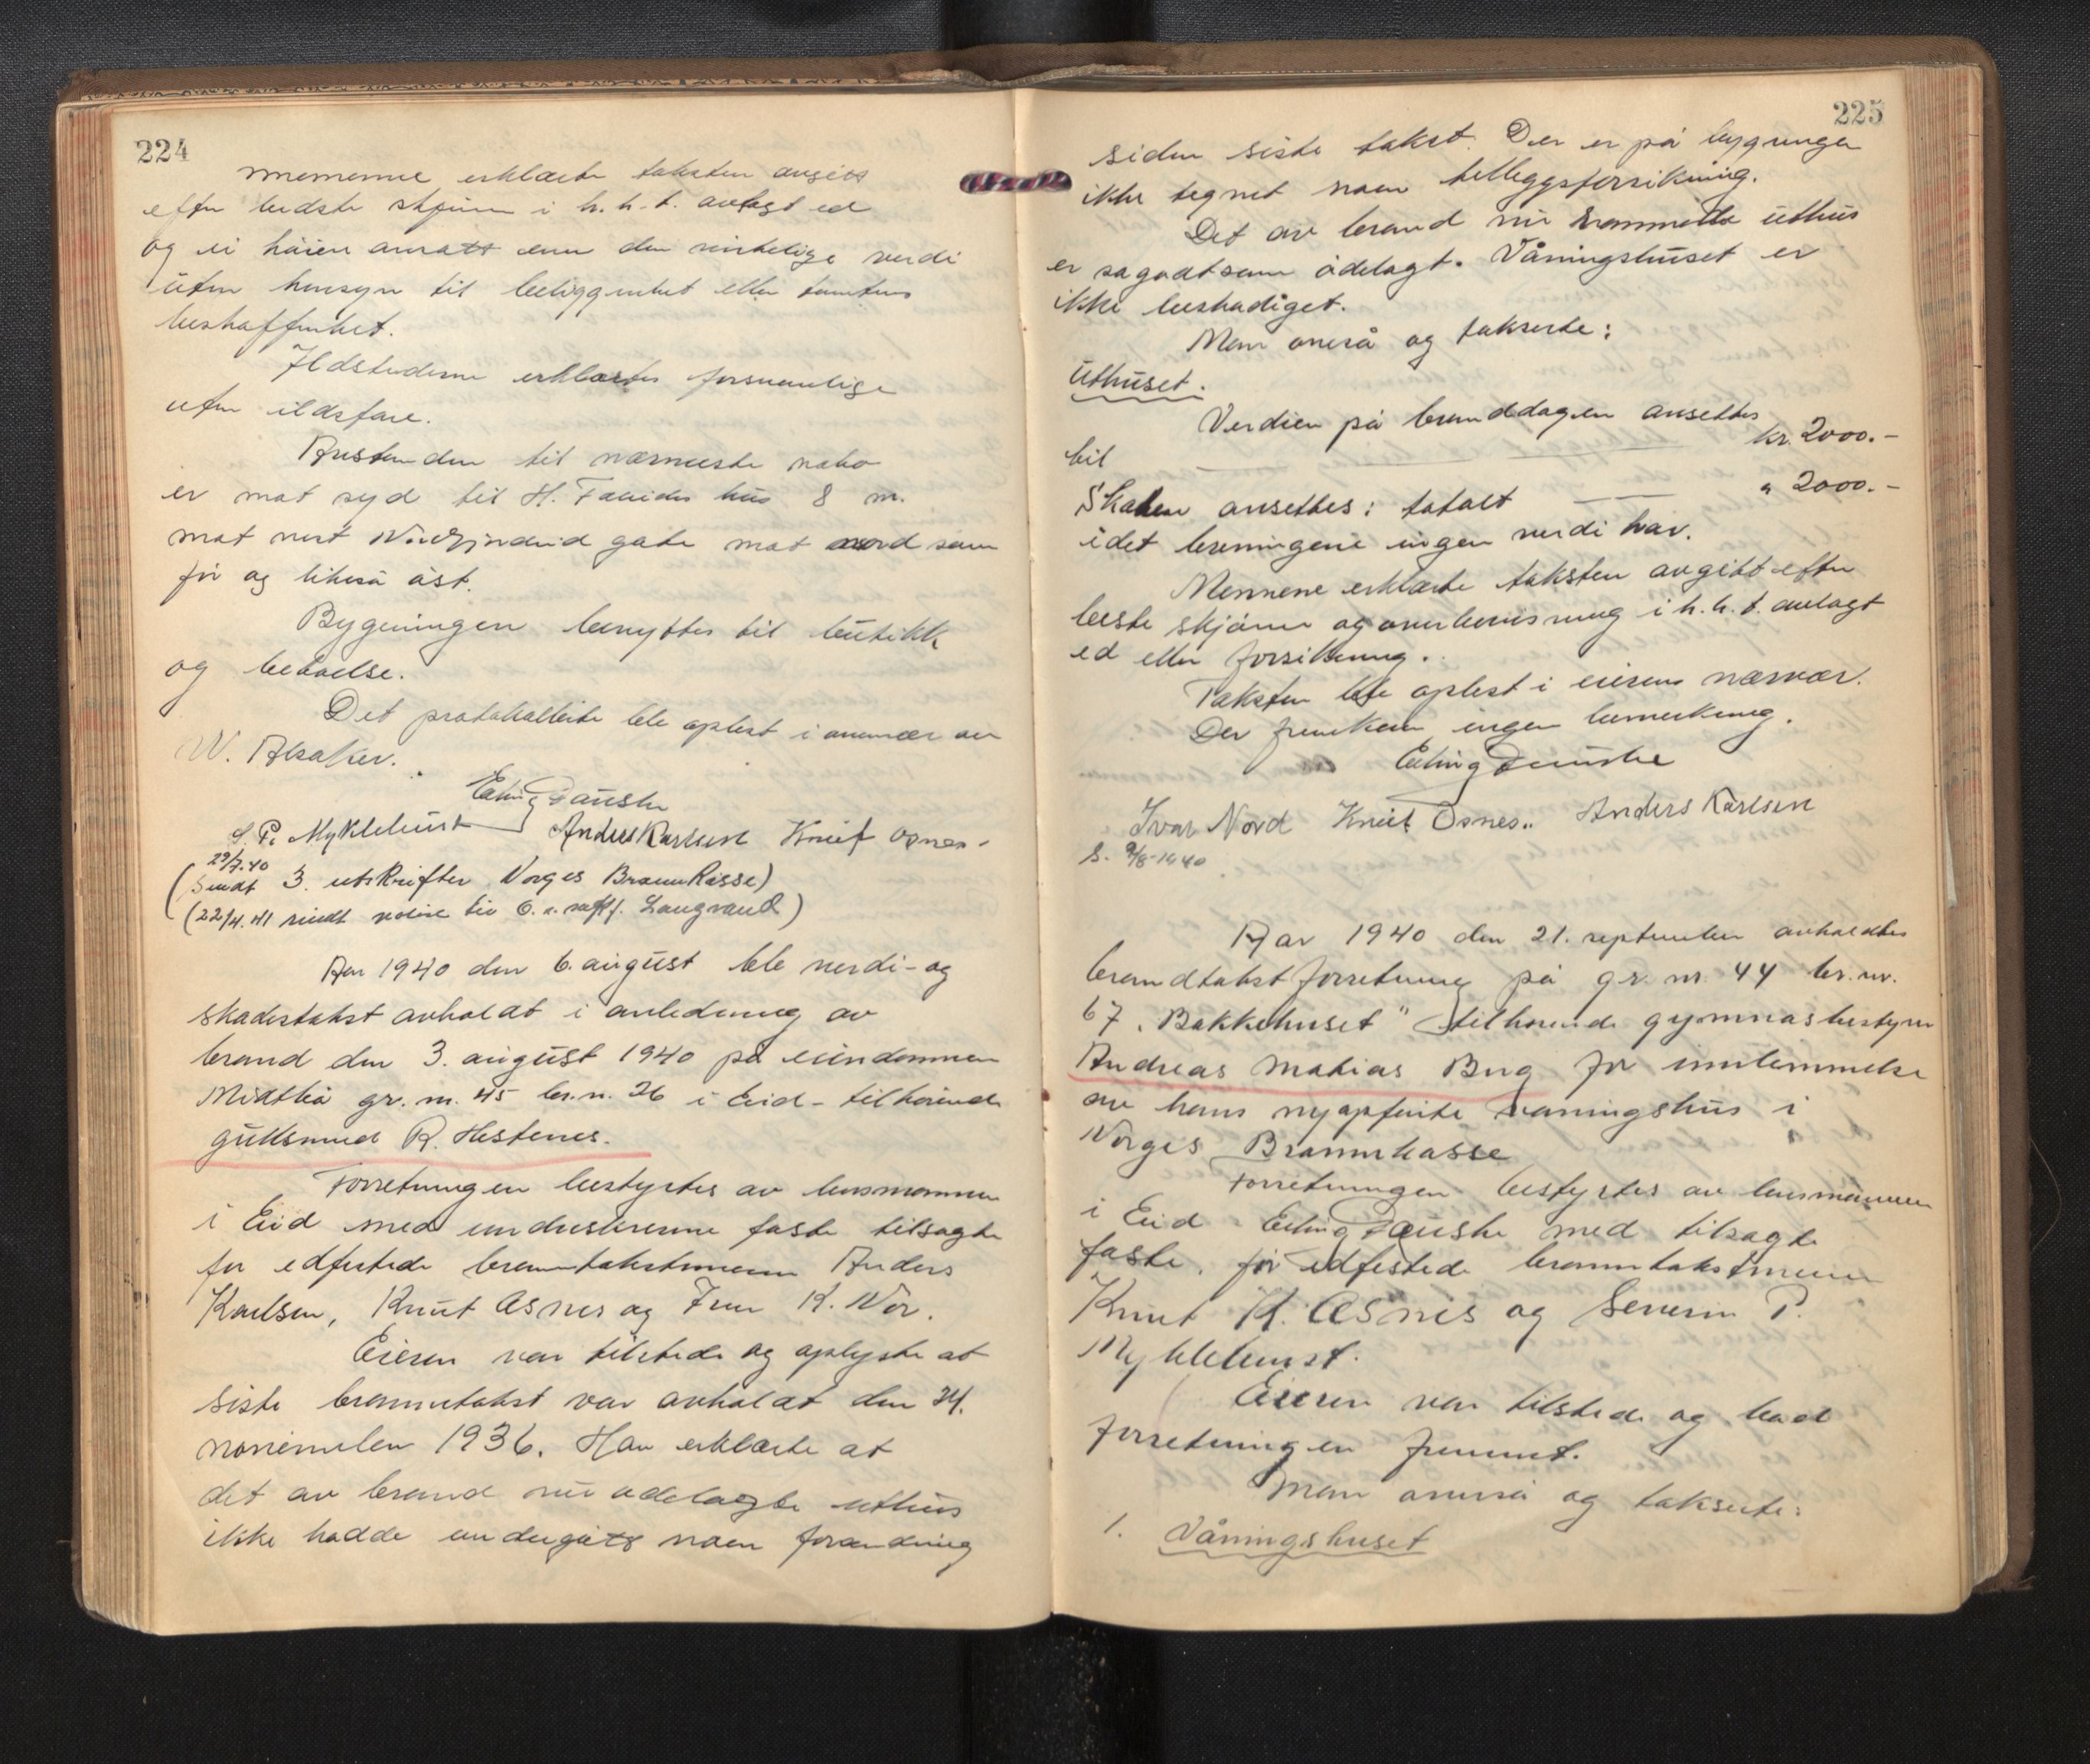 224
mennene erklærte taksten avgitt
efter bedste skjønn i h. h. t. avlagt ed
og ei høiere ansatt enn den virkelige verdi
uten hensyn til beliggenhet eller tomtens
beskaffenhet.
Ildstederne erklærtes forsvarlige
uten ildsfare.
Avstanden til nærmeste nabo
er mot syd til H. hus 8 m.
mot vest gate mot nord som
før og likeså øst.
Bygningen benyttes til butikk
og beboelse.
Det protokollerte ble oplest i overvær av
W. Alsaker.
Erling Dauske
S. P. Myklebust Anders Karlsen Knut Osnes.
29/7.40
(Sendt 3. utskrifter Norges Brannkasse)
(22/4.41 sendt Langvand)
Aar 1940 den 6. august ble verdi- og
skadestakst avholdt i anledning av
brand den 3. august 1940 på eiendommen
Midtbø gr. nr. 45 br. n. 26 i Eid - tilhørende
gullsmed R. Hestenes.
Forretningen bestyrtes av lensmannen
i Eid med underskrevne faste tilsagte
før edfestede branntakstmenn Anders
Karlsen, Knut Osnes og K. Nor.
Eieren var tilstede og oplyste at
siste branntakst var avholdt den 24.
november 1936. Han erklærte at
det av brand nu ødelagte uthus
ikke hadde undergått noen forandring
225
siden siste takst. Der er på bygningen
ikke tegnet noen tilleggsforsikring.
Det av brand nu rammede uthus
er sagodtsom ødelagt. Våningshuset er
ikke beskadiget.
Man overså og takserte:
Uthuset.
Verdien på branddagen ansettes
til kr. 2000.-
Skaden ansettes: totalt " 2000.-
idet levningene ingen verdi har.
Mennene erklærte taksten avgitt efter
beste skjønn og overbevisning i h. h. t. avlagt
ed eller forsikring.
Taksten ble oplest i eierens nærvær.
Der fremkom ingen bemerkning.
Erling Dauske
Ivar Nord Knut Osnes. Anders Karlsen
S. 9/8-1940.
Aar 1940 den 21. september avholdtes
brandtakstforretning på gr. nr. 44 br. nr.
67 "Bakkehuset" tilhørende gymnasbestyrer
Andreas Matias Berg for innlemmelse
av hans nyopførte våningshus i
Norges Brannkasse
Forretningen bestyrtes av lensmannen
i Eid Erling Dauske med tilsagte
faste, før edfestede branntakstmenn
Knut K. Osnes og Severin P.
Myklebust.
Eieren var tilstede og bad
forretningen fremmet.
Man overså og takserte:
1. Våningshuset